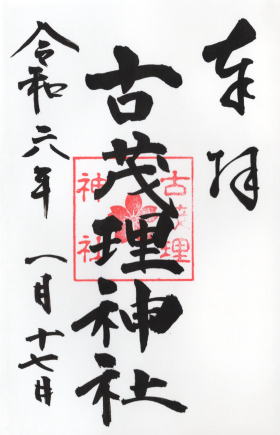 奉拝
古茂理神社
古茂理
神社
令和六年 一月十七日